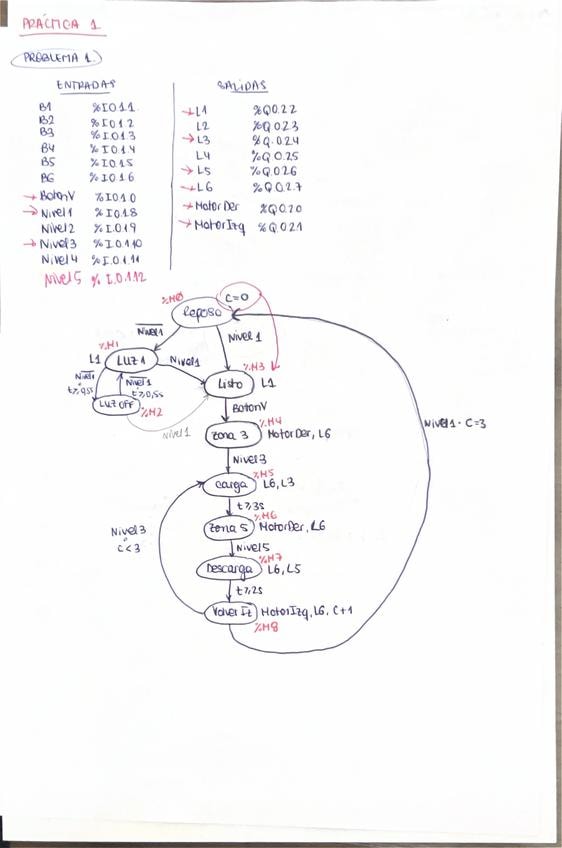 PRÁCTICA 1
PROBLEMA 1.
ENTRADAS
B1 %I0.1.1
B2 %I0.1.2
B3 %I0.1.3
B4 %I0.1.4
B5 %I0.1.5
B6 %I0.1.6
→ BotonV %I0.1.0
→ Nivel1 %I0.1.8
Nivel2 %I.0.1.9
→ Nivel3 %I.0.1.10
Nivel4 %I.0.1.11
Nivel5 %I.0.1.12
SALIDAS
→ L1 %Q0.2.2
L2 %Q0.2.3
→ L3 %Q.0.2.4
L4 %Q0.2.5
→ L5 %Q.0.2.6
→ L6 %Q0.2.7
→ MotorDer %Q0.2.0
→ MotorIzq %Q0.2.1
%M0 Reposo C=0
Nivel1 Nivel 1
%M1
L1 LUZ 1 Nivel1 %M3
Listo L1
Nivel1 t≥0,5s Nivel1 t≥0,5s
LUZ OFF %M2
BotonV
Nivel1
%M4
Zona 3 MotorDer, L6
Nivel1 · C=3
Nivel3
%M5
Carga L6, L3
t≥3s
%M6
Zona 5 MotorDer, L6
Nivel3 · C<3
Nivel5
%M7
Descarga L6, L5
t≥2s
Volver Iz MotorIzq, L6, C+1
%M8